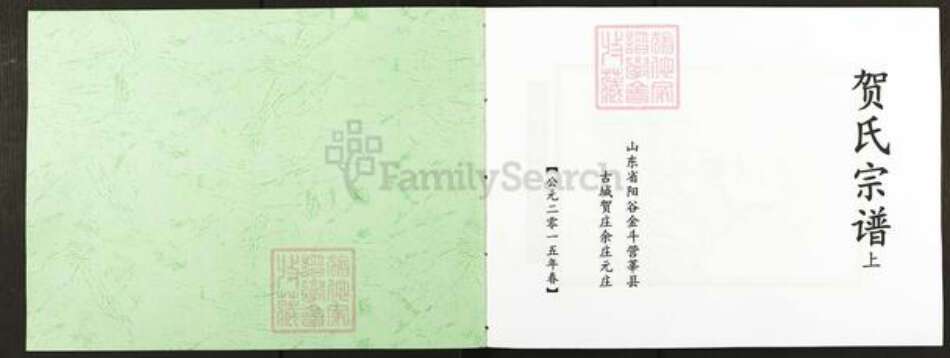 贺氏宗谱上
山东省阳谷金斗营莘县
古城贺庄余庄元庄
【公元二零一五年春】
FamilySearch